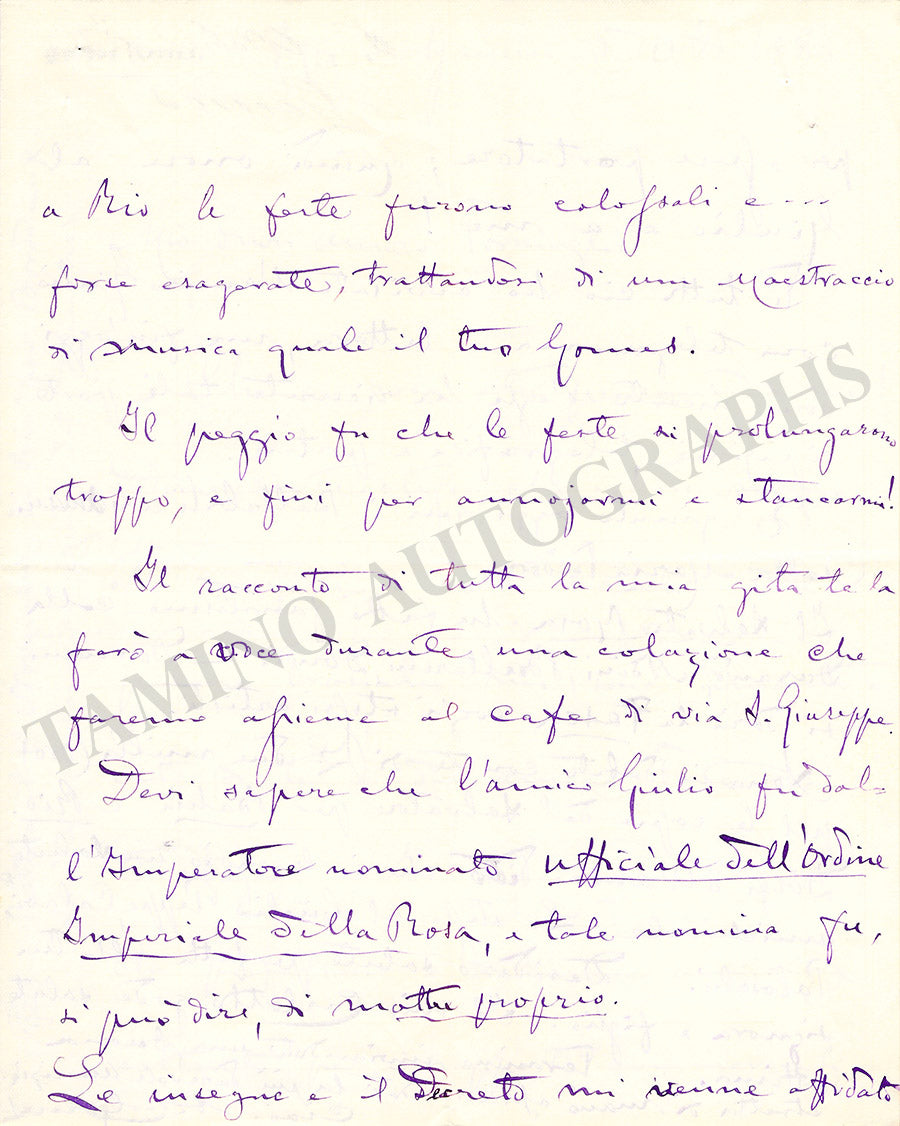 a Rio le feste furono colossali e ...
forse esagerate, trattandosi di un Maestraccio
di musica quale il tuo Gomes.
Il peggio fu che le feste si prolungarono
troppo, e finì per annojarmi e stancarmi!
Il racconto di tutta la mia gita te la
farò a voce durante una colazione che
faremo assieme al cafe di via S. Giuseppe.
Devi sapere che l'amico Giulio fu dal=
l'Imperatore nominato ufficiale dell'Ordine
Imperiale della Rosa, e tale nomina fu,
si può dire, di mottu proprio.
Le insegne e il Decreto mi venne affidato
TAMINO AUTOGRAPHS